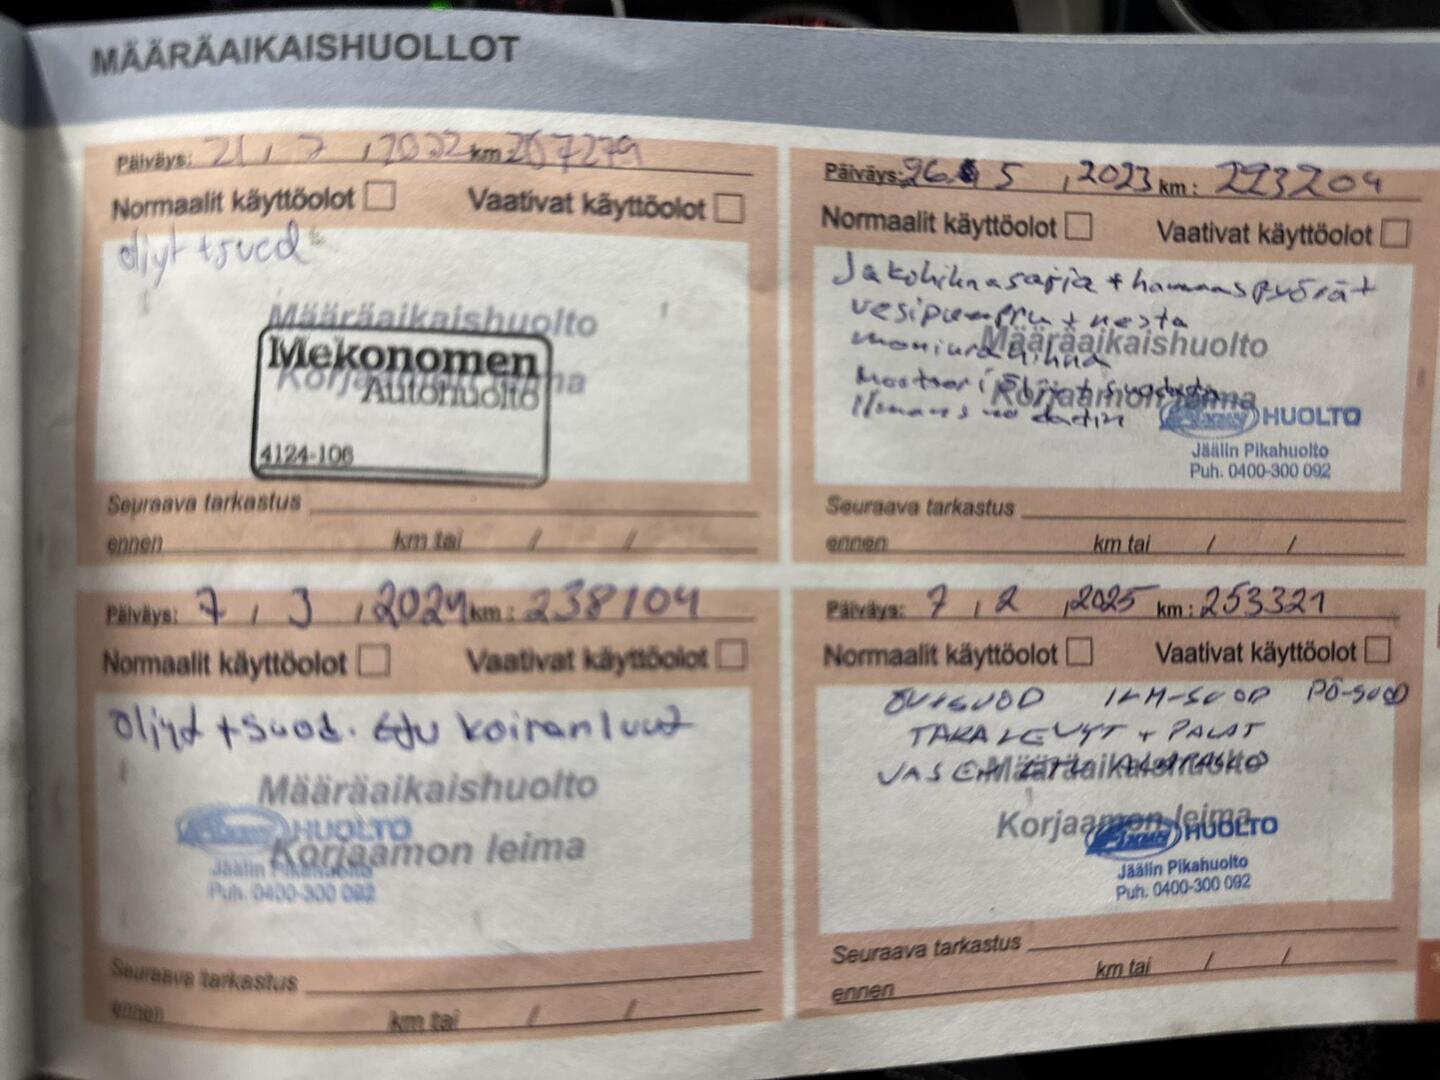 MÄÄRÄAIKAISHUOLLOT
Päiväys: 21 / 7 / 2022 km: 207279
Normaalit käyttöolot Vaativat käyttöolot
öljyt + suod
Määräaikaishuolto
Korjaamon leima
Mekonomen
Autohuolto
4124-106
Seuraava tarkastus
ennen km tai / /
Päiväys: 26. 5 , 2023 km: 223204
Normaalit käyttöolot Vaativat käyttöolot
Jakohihnasarja + hammaspyörät
vesipumppu + nesta
moniurahihna
Moottori öljyt
Ilmansuodatin
Määräaikaishuolto
Korjaamon leima
HUOLTO
Jäälin Pikahuolto
Puh. 0400-300 092
Seuraava tarkastus
ennen km tai / /
Päiväys: 7 , 3 , 2024 km: 238104
Normaalit käyttöolot Vaativat käyttöolot
öljyt + suod. Etu koiranluut
Määräaikaishuolto
Korjaamon leima
HUOLTO
Jäälin Pikahuolto
Puh. 0400-300 092
Seuraava tarkastus
ennen km tai / /
Päiväys: 7 , 2 , 2025 km: 253321
Normaalit käyttöolot Vaativat käyttöolot
ILM-SUOD PÖ-SUOD
TAKALEVYT + PALAT
VASEN ETU
Määräaikaishuolto
Korjaamon leima
HUOLTO
Jäälin Pikahuolto
Puh. 0400-300 092
Seuraava tarkastus
ennen km tai / /